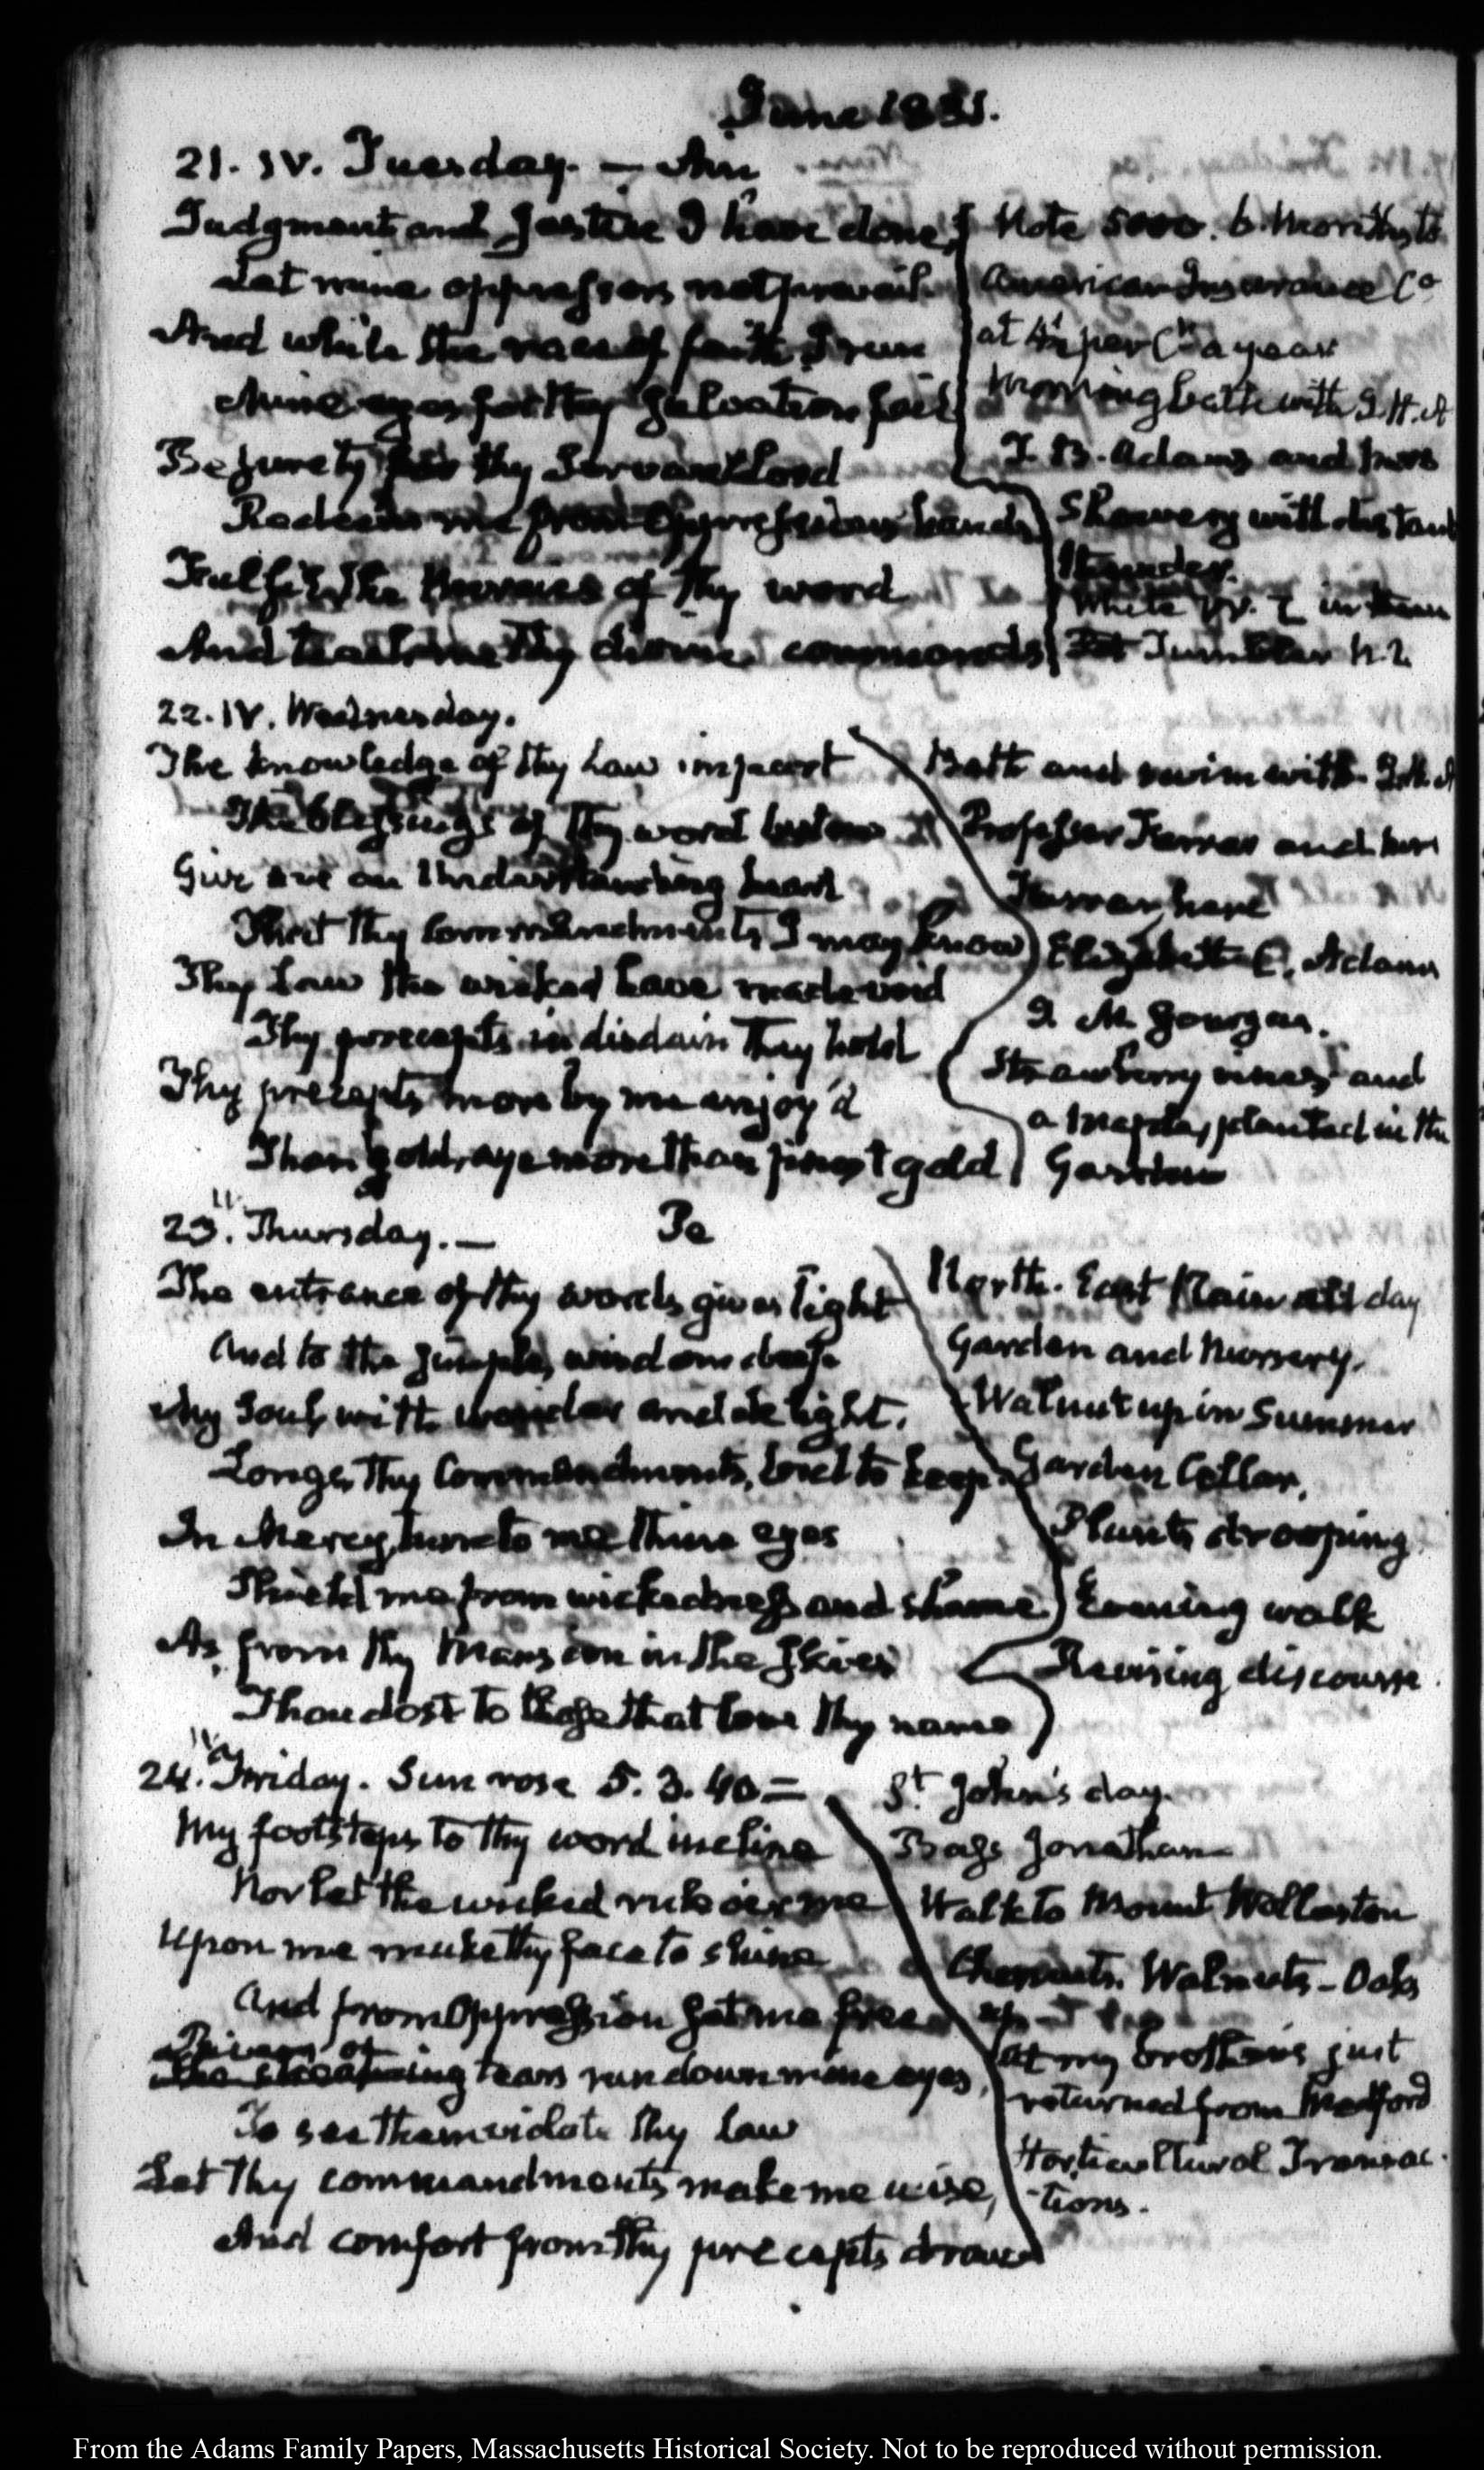 June 1831.
21. IV. Tuesday. —
Judgment and Justice I have done,
Let mine oppressors not prevail
And while the race of faith I run
Mine eyes for thy Salvation fail
Be surety for thy Servant Lord
Redeem me from Oppression's hands
Fulfil the of thy word
And teach me thy divine commands
Note 5000. 6. Months to
American Insurance Co
at per Ct a year
Morning bath with I. H. A
T. B. Adams and Mrs
Showery with distant
thunder.
White in
Tumbler N. 2
22. IV. Wednesday.
The knowledge of thy Law impart
The blessings of thy word bestow
Give me an Understanding heart
That thy Commandments I may know
Thy Law the wicked have made void
Thy precepts in disdain they hold
Thy precepts more by me enjoy'd
Than gold, aye more than finest gold
Bath and swim with I. H. A
Professor Farrar and Mrs
Farrar here
Elizabeth C. Adams
I. M. Gourgas.
Strawberry vines and
a planted in the
Garden
23. IV. Thursday. —
The entrance of thy words gives light
And to the Simple, wisdom deep
My Soul, with wonder and delight,
Longs thy Commandments, Lord to keep
In Mercy, turn to me thine eyes
Shield me from wickedness and shame
As from thy Mansion in the Skies
Thou dost to those that love thy name
North. East Rain all day
Garden and Nursery.
Walnut up in Summer
Garden Cellar.
Plants drooping
Evening walk
Revising discourse
24. IV. Friday. Sun rose 5. 3. 40 =
My footsteps to thy word incline
Nor let the wicked rule o'er me
Upon me make thy face to shine
And from Oppression set me free
Rivers of
The streaming tears run down mine eyes,
To see them violate thy Law
Let thy commandments make me wise,
And comfort from thy precepts draw
St. John's day.
Bass Jonathan
Walk to Mount Wollaston
Chesnuts. Walnuts - Oaks
up
at my brother's just
returned from Medford
Horticultural Transac-
-tions.
From the Adams Family Papers, Massachusetts Historical Society. Not to be reproduced without permission.